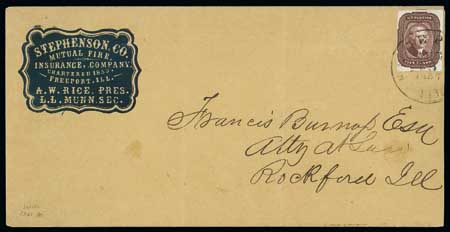 STEPHENSON, CO.
MUTUAL FIRE,
INSURANCE, COMPANY.
CHARTERED 1853.
FREEPORT, ILL.
A. W. RICE, PRES.
L. L. MUNN, SEC.
Francis Burnap Esq
Atty at Law
Rockford Ill